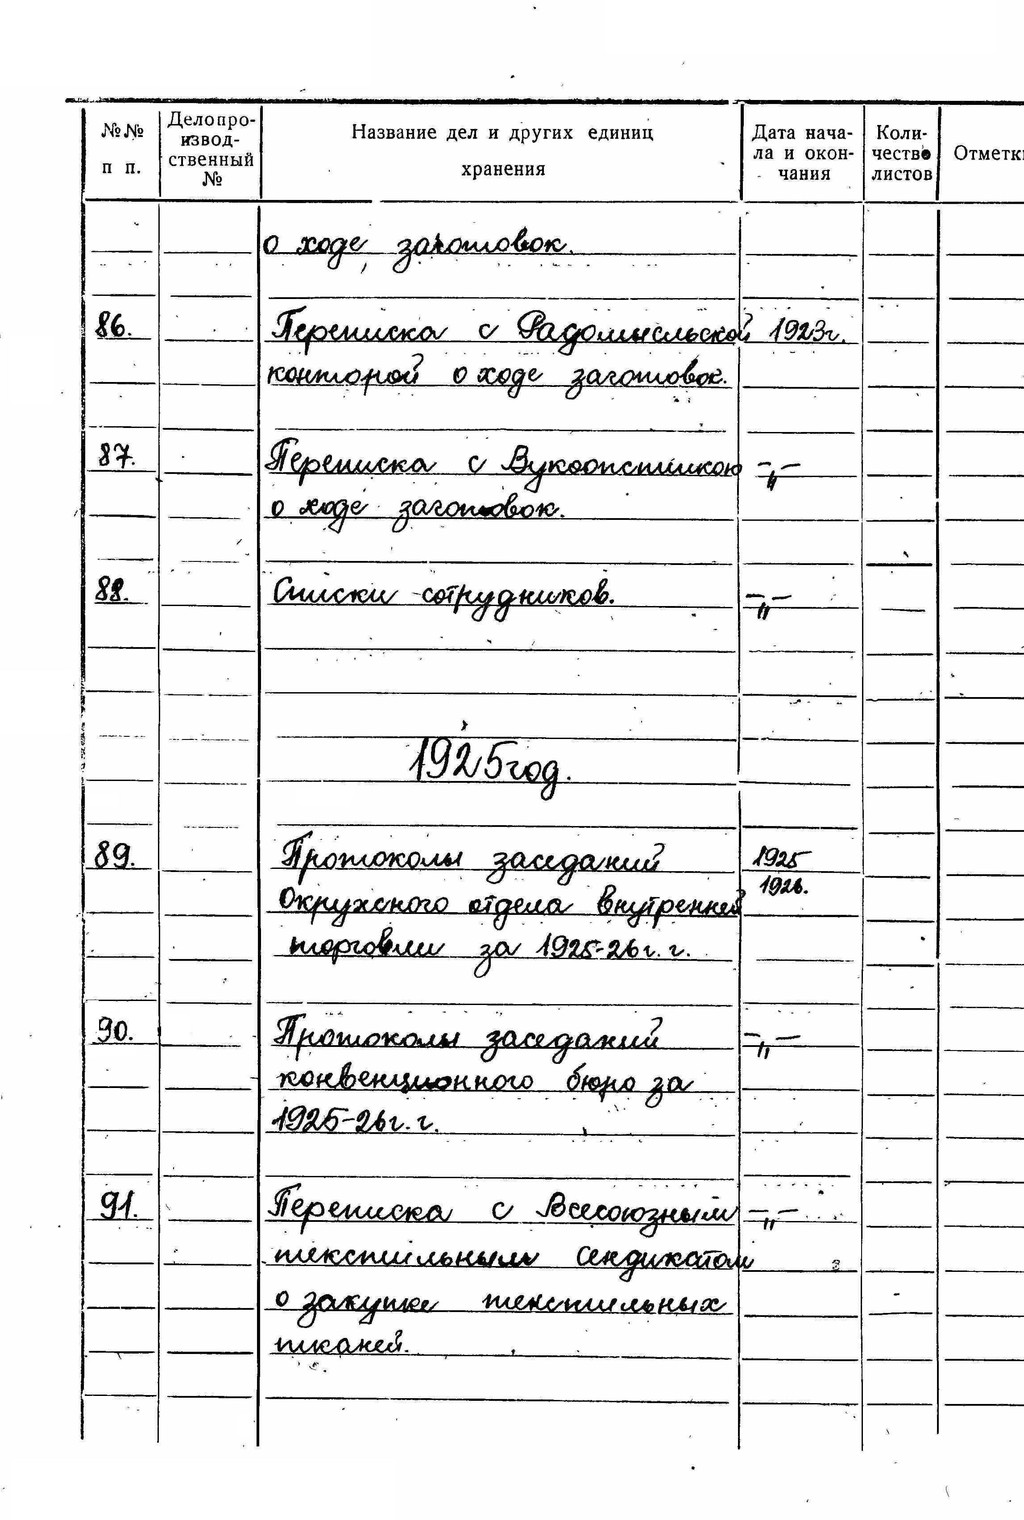 №№ п п.
Делопроизвод-ственный №
Название дел и других единиц хранения
Дата нача-ла и окон-чания
Коли-чество листов
Отметки
о ходе заготовок.
86. Переписка с Радомысльской 1923г.
конторой о ходе заготовок.
87. Переписка с Вукоопспилкою —„—
о ходе заготовок.
88. Списки сотрудников. —„—
1925 год.
89. Протоколы заседаний 1925
Окружного отдела внутренней 1926.
торговли за 1925-26г.г.
90. Протоколы заседаний —„—
конвенционного бюро за
1925-26г.г.
91. Переписка с Всесоюзным —„—
текстильным сендикатом
о закупке текстильных
тканей.